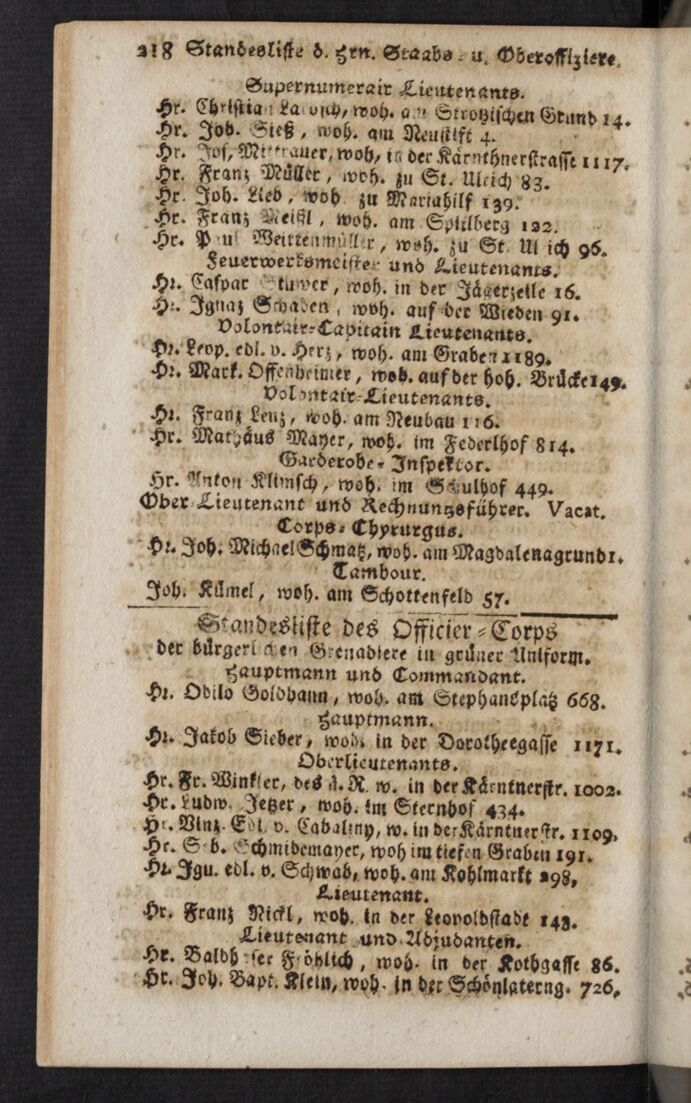 218 Standesliste d. Hrn. Staabs- u. Oberoffiziere.
Supernumerair Lieutenants.
Hr. Christian woh. am Strotzischen Grund 14.
Hr. Joh. Sieß, woh. am Neustift 4.
Hr. Jos. Mitterauer, woh, in der Kärnthnerstrasse 1117.
Hr. Franz Müller, woh. zu St. Ulrich 83.
Hr. Joh. Lied, woh. zu Mariahilf 139.
Hr. Franz Meißl, woh. am Spitlberg 122.
Hr. Paul Weittenmüller, woh. zu St. Ulrich 96.
Feuerwerksmeister und Lieutenants.
Hr. Caspar Stuwer, woh. in der Jägerzeile 16.
Hr. Ignaz Schaden, woh. auf der Wieden 91.
Volontair-Capitain Lieutenants.
Hr. Leop. edl. v. Herz, woh. am Graben 1189.
Hr. Mark. Offenheimer, woh. auf der hoh. Brücke 149.
Volontair-Lieutenants.
Hr. Franz Lenz, woh. am Neubau 116.
Hr. Mathäus Mayer, woh. im Federlhof 814.
Garderobe-Inspektor.
Hr. Anton Klimsch, woh. im Schulhof 449.
Ober-Lieutenant und Rechnungsführer. Vacat.
Corps-Chyrurgus.
Hr. Joh. Michael Schmatz, woh. am Magdalenagrund 1.
Tambour.
Joh. Kümel, woh. am Schottenfeld 57.
Standesliste des Officier-Corps
der bürgerlichen Grenadiere in grüner Uniform.
Hauptmann und Commandant.
Hr. Odilo Goldhann, woh. am Stephansplatz 668.
Hauptmann.
Hr. Jakob Sieber, woh. in der Dorotheegasse 1171.
Oberlieutenants.
Hr. Fr. Winkler, des ä. R. w. in der Kärntnerstr. 1002.
Hr. Ludw. Jetzer, woh. im Sternhof 434.
Hr. Vinz. Edl. v. Cabaliny, w. in der Kärntnerstr. 1109.
Hr. Seb. Schmidemayer, woh im tiefen Graben 191.
Hr. Ign. edl. v. Schwab, woh. am Kohlmarkt 298,
Lieutenant.
Hr. Franz Nickl, woh. in der Leopoldstadt 143.
Lieutenant und Adjudanten.
Hr. Baldhaser Fröhlich, woh. in der Kothgasse 86.
Hr. Joh. Bapt. Klein, woh. in der Schönlaterng. 726.